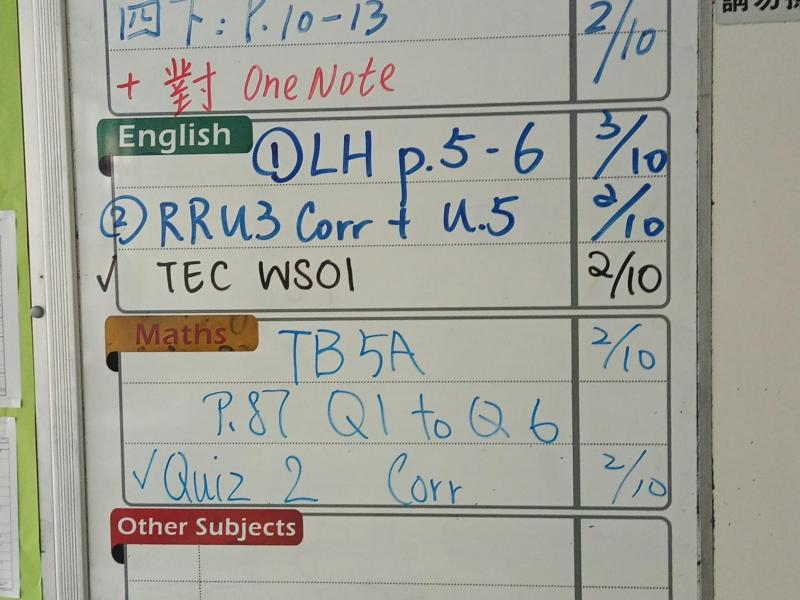 四下: P.10-13 2/10
+ 對 OneNote
English ① LH p.5-6 3/10
② RRU3 Corr + U.5 2/10
✓ TEC WS01 2/10
Maths TB 5A 2/10
P.87 Q1 to Q6
✓ Quiz 2 Corr 2/10
Other Subjects